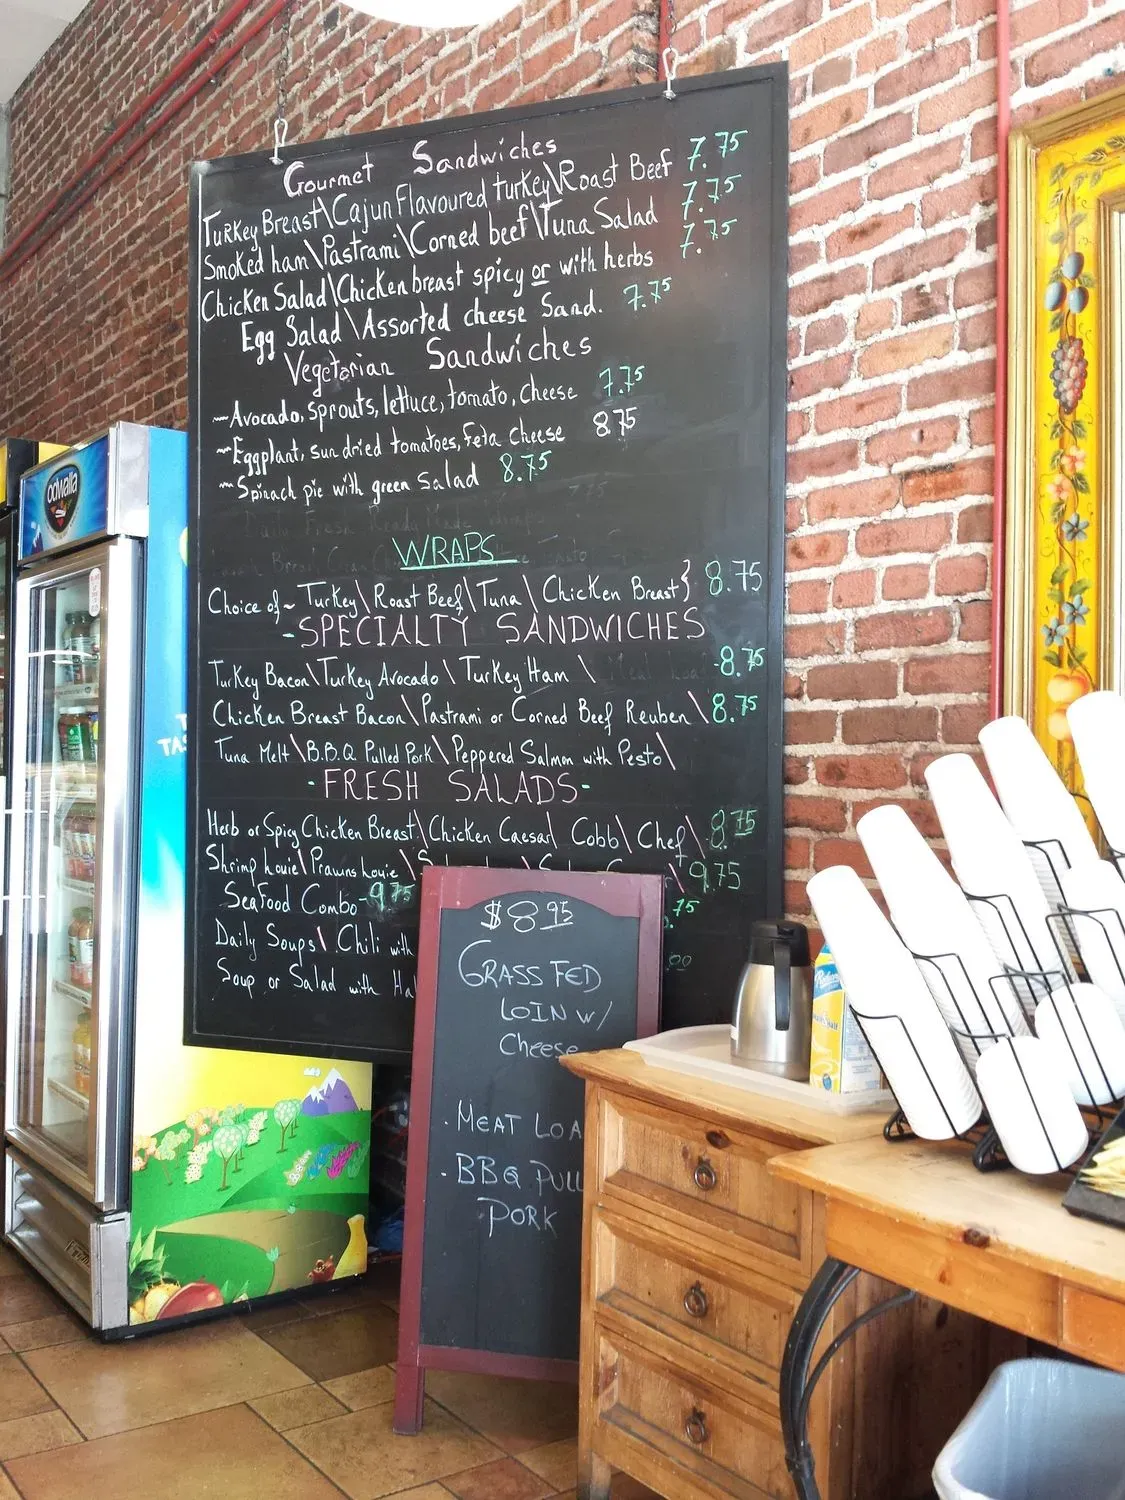 Gourmet Sandwiches
Turkey Breast\Cajun Flavoured turkey\Roast Beef 7.75
Smoked ham\Pastrami\Corned beef\Tuna Salad 7.75
Chicken Salad\Chicken breast spicy or with herbs 7.75
Egg Salad\Assorted cheese Sand. 7.75
Vegetarian Sandwiches
~Avocado, sprouts, lettuce, tomato, cheese 7.75
~Eggplant, sun dried tomatoes, Feta cheese 8.75
~Spinach pie with green Salad 8.75
Daily Fresh Ready Made
WRAPS
Choice of~ Turkey\Roast Beef\Tuna\Chicken Breast} 8.75
-SPECIALTY SANDWICHES
Turkey Bacon\Turkey Avocado\Turkey Ham\ -8.75
Chicken Breast Bacon\Pastrami or Corned Beef Reuben\8.75
Tuna Melt\B.B.Q Pulled Pork\Peppered Salmon with Pesto\
-FRESH SALADS-
Herb or Spicy Chicken Breast\Chicken Caesar\Cobb\Chef\8.75
Shrimp Louie\Prawns Louie\ \9.75
Seafood Combo-9.75
.75
Daily Soups\Chili with
.00
Soup or Salad with Ha
$8.95
GRASS FED
LOIN w/
Cheese
·MEAT LOA
·BBQ PULL
PORK
odwalla